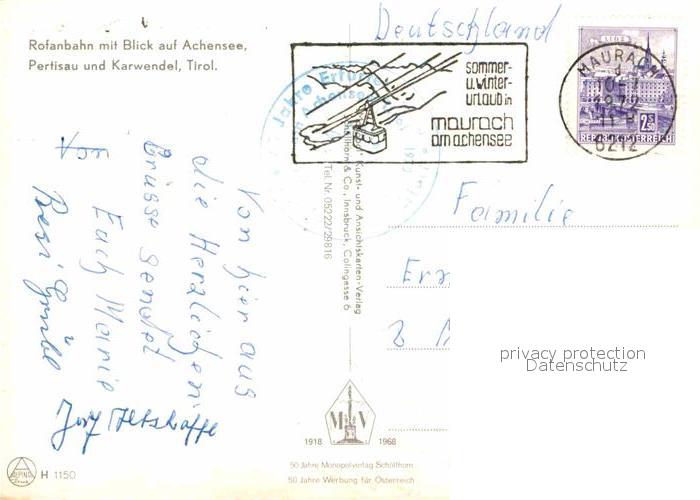 Rofanbahn mit Blick auf Achensee,
Pertisau und Karwendel, Tirol.
Deutschland
sommer-
u. winter-
urlaub in
maurach
am achensee
MAURACH
1972
6212
LINZ
2.50
REPUBLIK ÖSTERREICH
Jahre
Achensee
Von hier aus
die Herzlichen
Grüsse sendet
Euch Marie
Kunst- und Ansichtskarten-Verlag
& Co., Innsbruck, Colingasse 6
Tel. Nr. 05222/29816
Familie
privacy protection
Datenschutz
M V
1918 1968
50 Jahre Monopolverlag Schöllhorn
50 Jahre Werbung für Österreich
ALPINA
H 1150